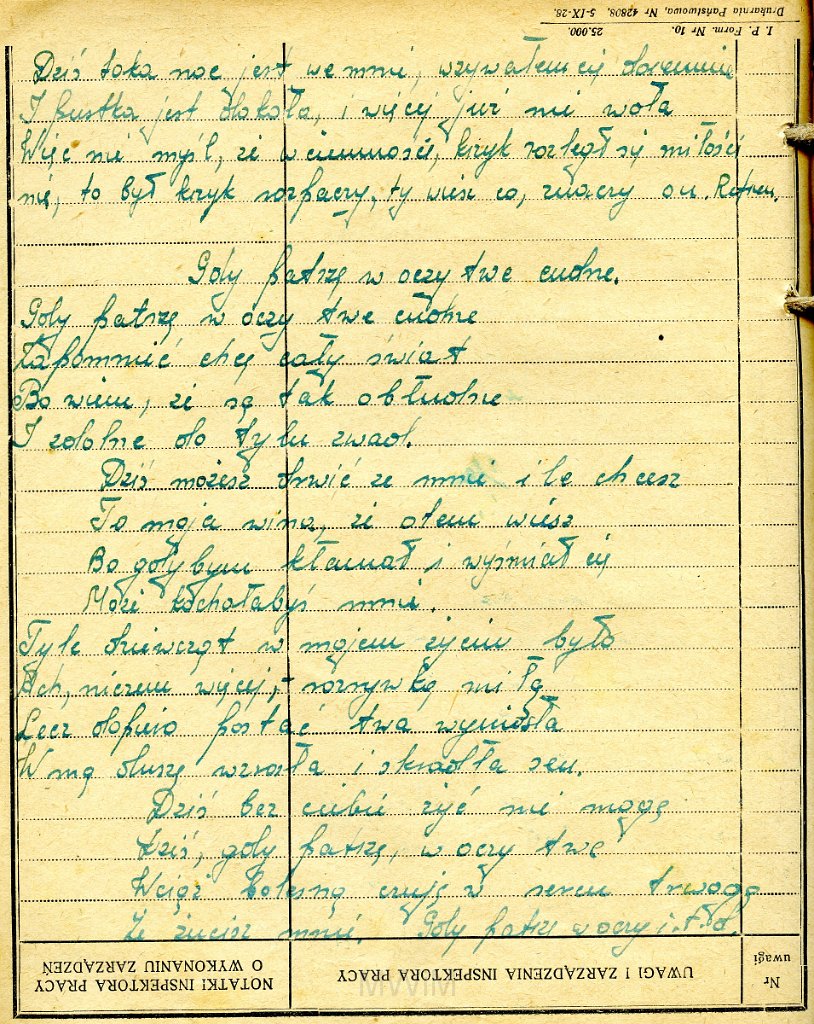 I. P. Form. Nr 10. 25.000.
Drukarnia Państwowa, Nr 42808. 5-IX-28.
Dziś taka noc jest we mnie, wzywałem cię daremnie
I pustka jest dokoła, i więcej już nie woła
Więc nie myśl, że w ciemności, krzyk rozległ się miłości
nie, to był krzyk rozpaczy, ty wiesz co, znaczy on. Refren.
Gdy patrzę w oczy twe cudne.
Gdy patrzę w oczy twe cudne
Zapomnieć chcę cały świat
Bo wiem, że są tak obłudne
I zdolne do tylu zwad.
Dziś możesz drwić ze mnie ile chcesz
To moja wina, że otem wiesz
Bo gdybym kłamał i wyśmiał cię
Może kochałabyś mnie.
Tyle dziewcząt w mojem życiu było
Ach, niczem więcej, - rozrywką miłą
Lecz dopiero postać twa wyniosła
W mą duszę wzrosła i skradła sen.
Dziś bez ciebie żyć nie mogę
Dziś, gdy patrzę, w oczy twe
Wciąż bolesną czuję w sercu trwogę
Że rzucisz mnie. Gdy patrzę w oczy i.t.d.
NOTATKI INSPEKTORA PRACY
O WYKONANIU ZARZĄDZEŃ
UWAGI I ZARZĄDZENIA INSPEKTORA PRACY
Nr
uwagi
MWIM